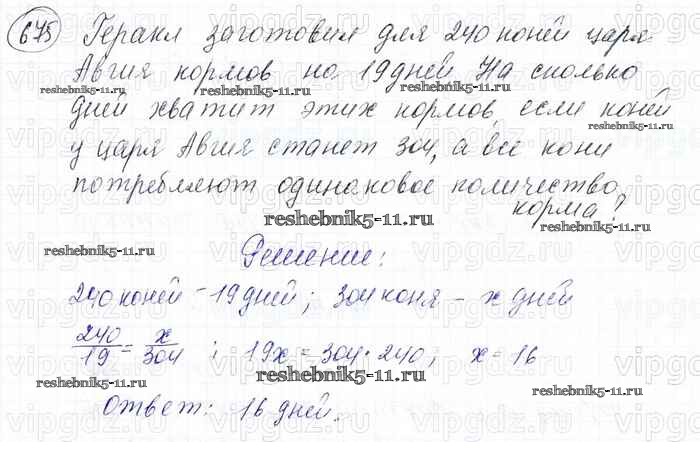 675 Геракл заготовил для 240 коней царя
Авгия кормов на 19 дней На сколько
reshebnik5-11.ru
reshebnik5-11.ru
дней хватит этих кормов, если коней
reshebnik5-11.ru
у царя Авгия станет 304, а все кони
потребляют одинаковое количество
корма?
reshebnik5-11.ru
Решение:
reshebnik5-11.ru
reshebnik5-11.ru
240 коней – 19 дней; 304 коня – x дней
240/19 = x/304 ; 19x = 304 · 240; x = 16
reshebnik5-11.ru
reshebnik5-11.ru
reshebnik5-11.ru
Ответ: 16 дней.
vipgdz.ru